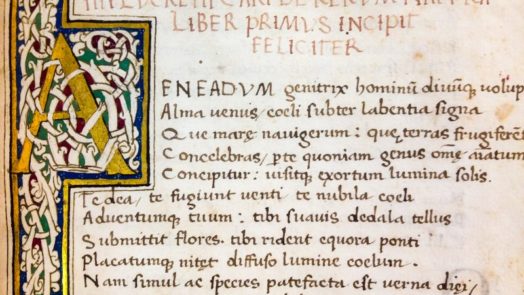 TITI LVCRETI CARI DE RERVM NATVRA
LIBER PRIMVS INCIPIT
FELICITER
AENEADVM genitrix hominũ diuũq; uolup
Alma uenus, coeli subter labentia signa
Que marę nauigerum: quę terras frugiferen
Concelebras, p te quoniam genus omẽ aĩatum
Concipitur: uisitq; exortum lumina solis.
Te dea, te fugiunt uenti te nubila coeli
Aduentumq; tuum: tibi suauis dedala tellus
Submittit flores. tibi rident equora ponti
Placatumq; nitęt diffuso lumine coelum.
Nam simul ac species patefacta est uerna diei,